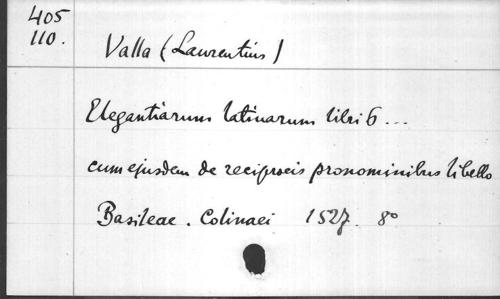 405
110.
Valla (Laurentius)
Elegantiarum latinarum libri 6 ...
cum ejusdem de reciprocis pronominibus libello
Basileae. Colinaei 1527. 8°